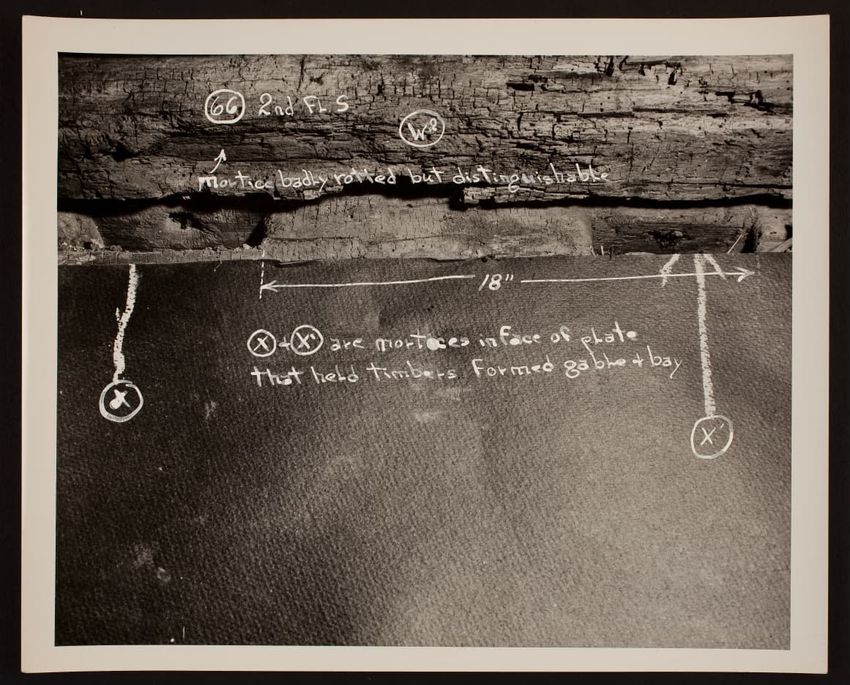 66 2nd FL S
W=8
Mortice badly rotted but distinguishable
18"
X + X' are mortices in face of plate
that held timbers formed gable + bay
X
X'